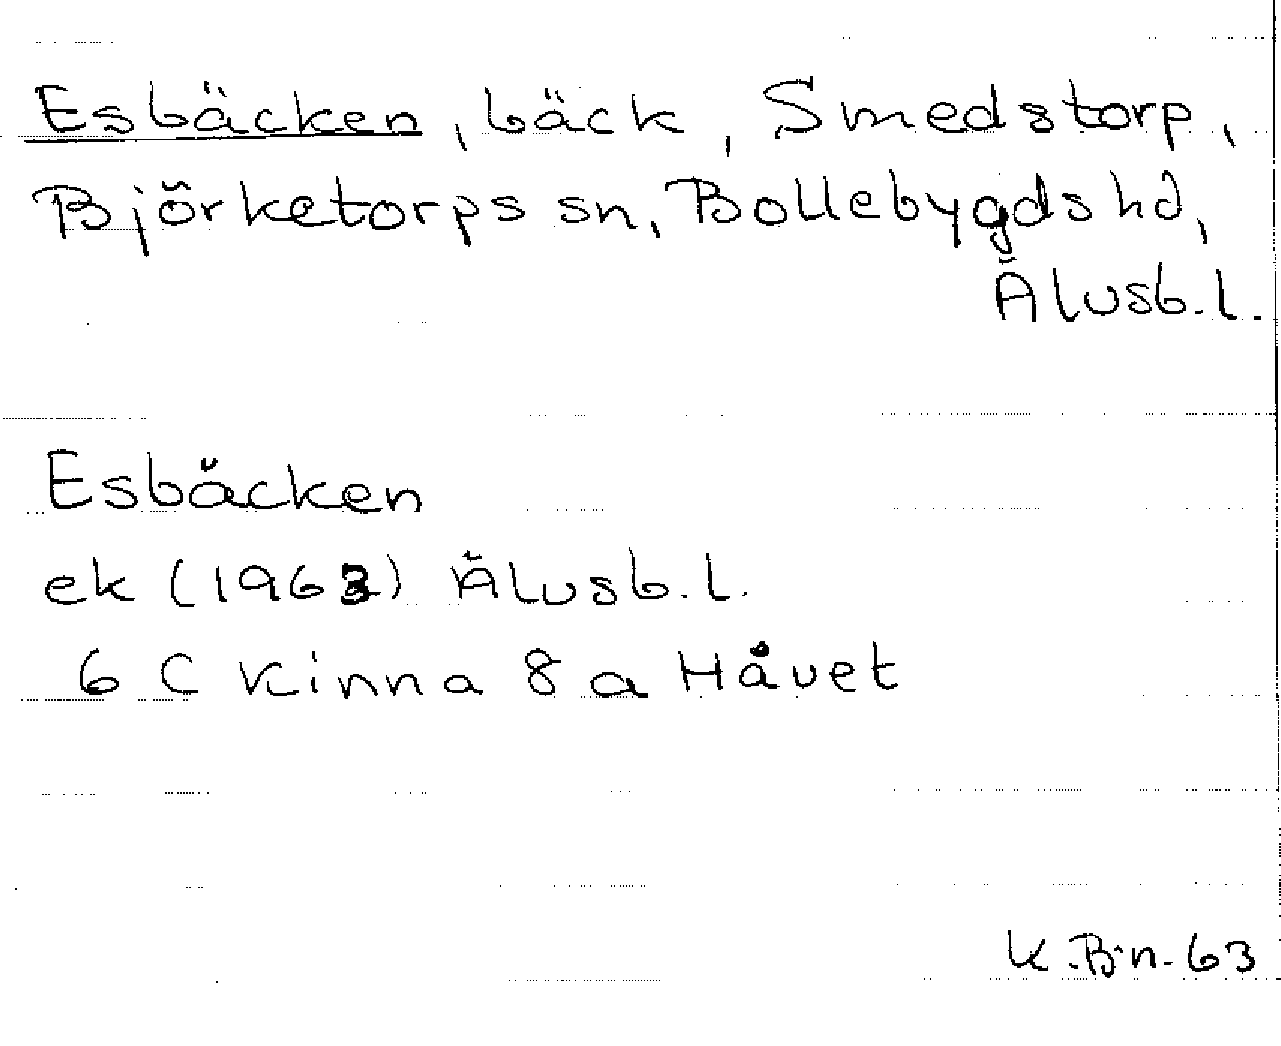 Esbäcken, bäck, Smedstorp,
Björketorps sn, Bollebygds hd,
Älvsb. l.
Esbäcken
ek (1963) Älvsb. l.
6 C Kinna 8 a Håvet
K. B-n. 63